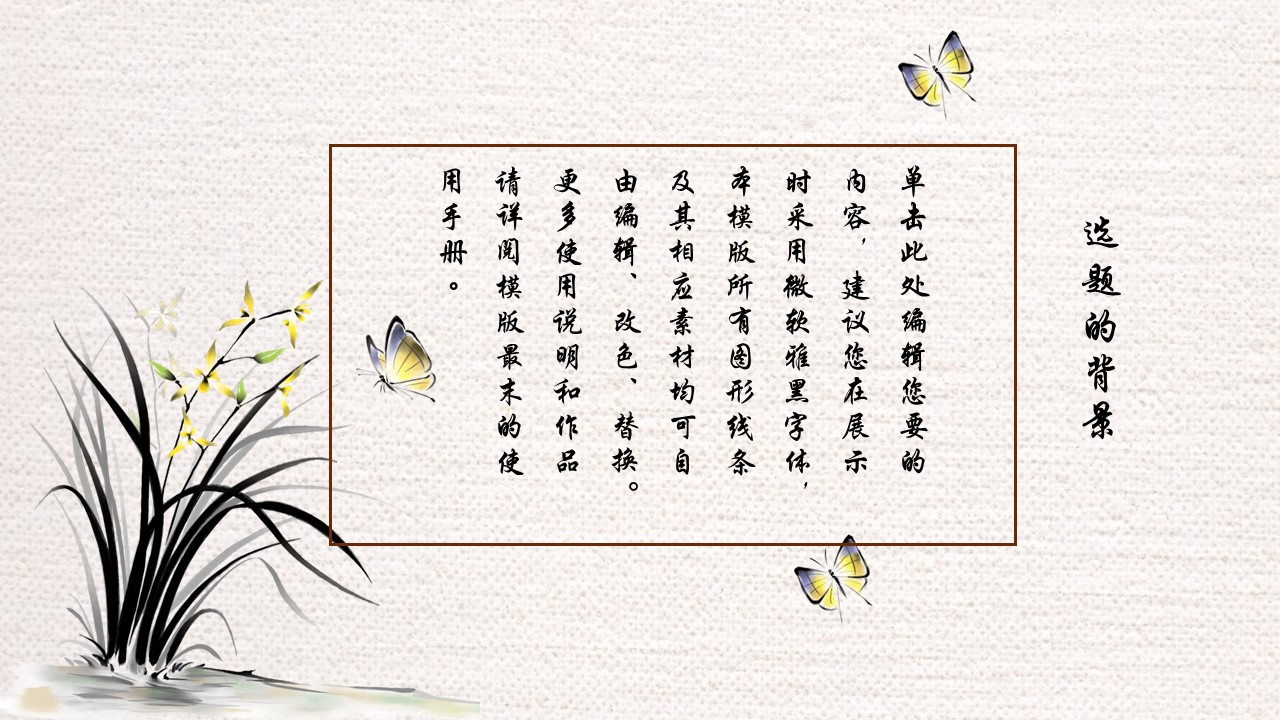 选题的背景
单击此处编辑您要的
内容，建议您在展示
时采用微软雅黑字体，
本模版所有图形线条
及其相应素材均可自
由编辑、改色、替换。
更多使用说明和作品
请详阅模版最末的使
用手册。